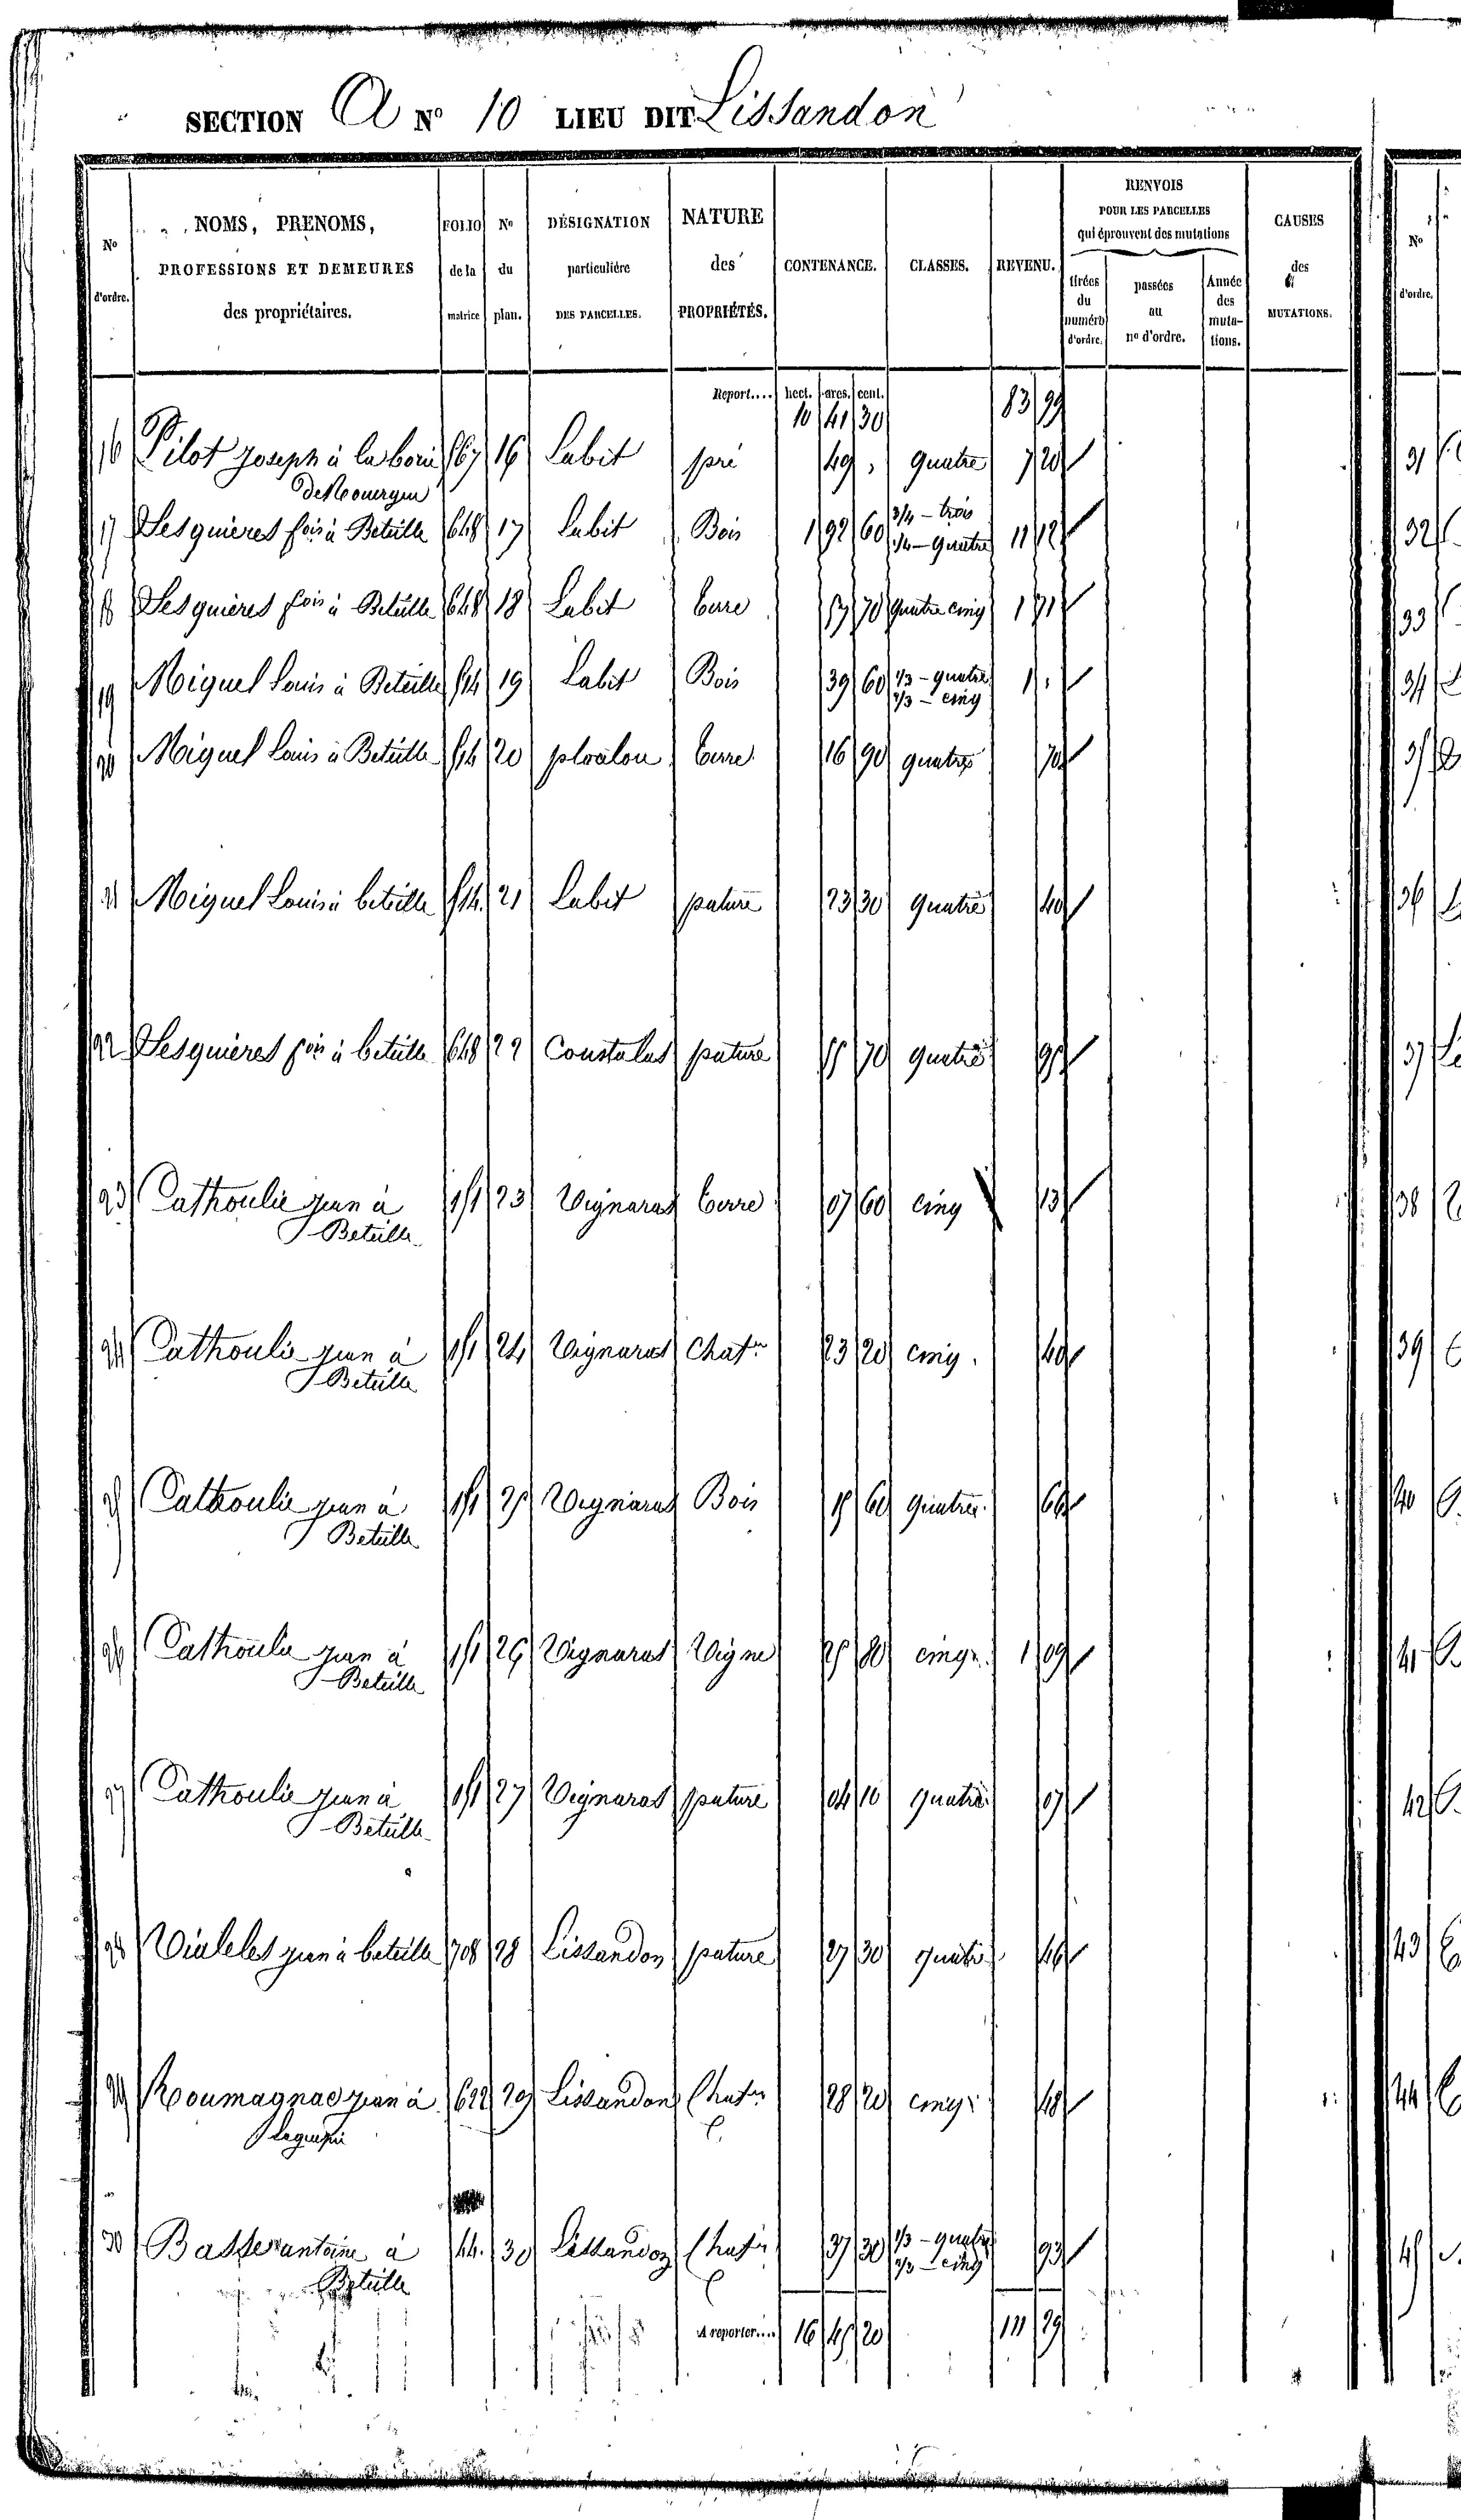 SECTION A No 10 LIEU DIT Lissandon
No d'ordre. NOMS, PRENOMS, PROFESSIONS ET DEMEURES des propriétaires. FOLIO de la matrice No du plan. DÉSIGNATION particulière DES PARCELLES. NATURE des PROPRIÉTÉS. CONTENANCE. CLASSES. REVENU. RENVOIS POUR LES PARCELLES qui éprouvent des mutations tirées du numéro d'ordre. passées au no d'ordre. Année des mutations. CAUSES des MUTATIONS. No d'ordre.
Report.... hect. ares. cent.
10 41 30 83 99
16 Pilot joseph à la borie 567 16 Labit pré 49 " quatre 7 20 31
de Rouergue
17 Lesquières fois à Beteille 648 17 Labit Bois 1 92 60 3/4 - trois 11 12 32
1/4 - quatre
18 Lesquières fois à Beteille 648 18 Labit terre 57 70 quatre cinq 1 71 33
19 Miquel Louis à Beteille 514 19 Labit Bois 39 60 1/3 - quatre 1 " 34
2/3 - cinq
20 Miquel Louis à Beteille 514 20 terre 16 90 quatre 70 35
21 Miquel Louis à beteille 514 21 Labit pature 23 30 quatre 40 36
22 Lesquières fois à beteille 648 22 Coustalas pature 55 70 quatre 95 37
23 Cathoulie jean à 151 23 Vignaras terre 07 60 cinq 13 38
Beteille
24 Cathoulie jean à 151 24 Vignaras Chatn 23 20 cinq 40 39
Beteille
25 Cathoulie jean à 151 25 Vignaras Bois 15 60 quatre 66 40
Beteille
26 Cathoulie jean à 151 26 Vignaras Vigne 25 80 cinq 1 09 41
Beteille
27 Cathoulie jean à 151 27 Vignaras pature 04 10 quatre 07 42
Beteille
28 Vialeles jean à beteille 708 28 Lissandon pature 27 30 quatre 46 43
29 Roumagnac jean à 622 29 Lissandon Chatn 28 20 cinq 48 44
laguepie
30 antoine à 44 30 Lissandon Chatn 37 30 1/3 - quatre 93 45
Beteille 2/3 - cinq
A reporter.... 16 45 20 111 29